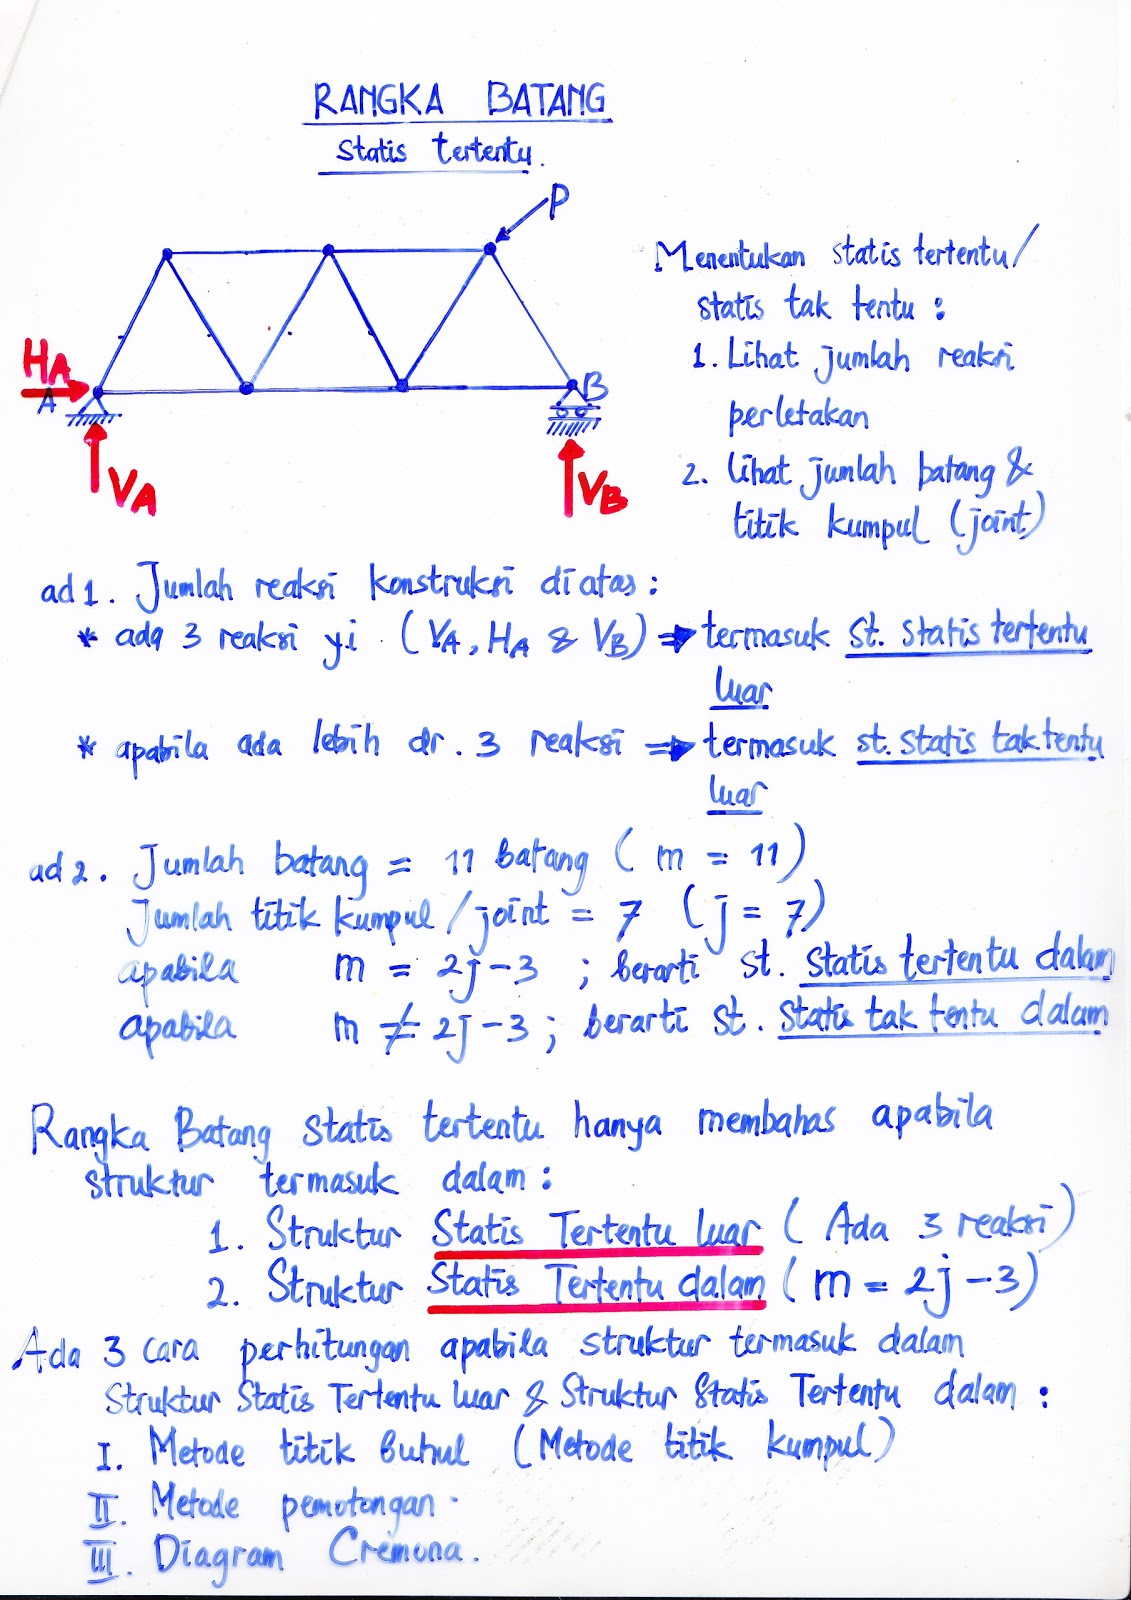 RANGKA BATANG
statis tertentu.
P
HA
A
B
VA
VB
Menentukan statis tertentu/
statis tak tentu :
1. Lihat jumlah reaksi
perletakan
2. Lihat jumlah batang &
titik kumpul (joint)
ad 1. Jumlah reaksi konstruksi diatas :
* ada 3 reaksi yi. (VA, HA & VB) ⇒ termasuk st. statis tertentu
luar
* apabila ada lebih dr. 3 reaksi ⇒ termasuk st. statis tak tentu
luar
ad 2. Jumlah batang = 11 batang (m = 11)
Jumlah titik kumpul/joint = 7 (j = 7)
apabila m = 2j - 3 ; berarti st. statis tertentu dalam
apabila m ≠ 2j - 3 ; berarti st. statis tak tentu dalam
Rangka Batang statis tertentu hanya membahas apabila
struktur termasuk dalam :
1. Struktur Statis Tertentu luar (Ada 3 reaksi)
2. Struktur Statis Tertentu dalam (m = 2j - 3)
Ada 3 cara perhitungan apabila struktur termasuk dalam
Struktur Statis Tertentu luar & Struktur Statis Tertentu dalam :
I. Metode titik buhul (Metode titik kumpul)
II. Metode pemotongan.
III. Diagram Cremona.